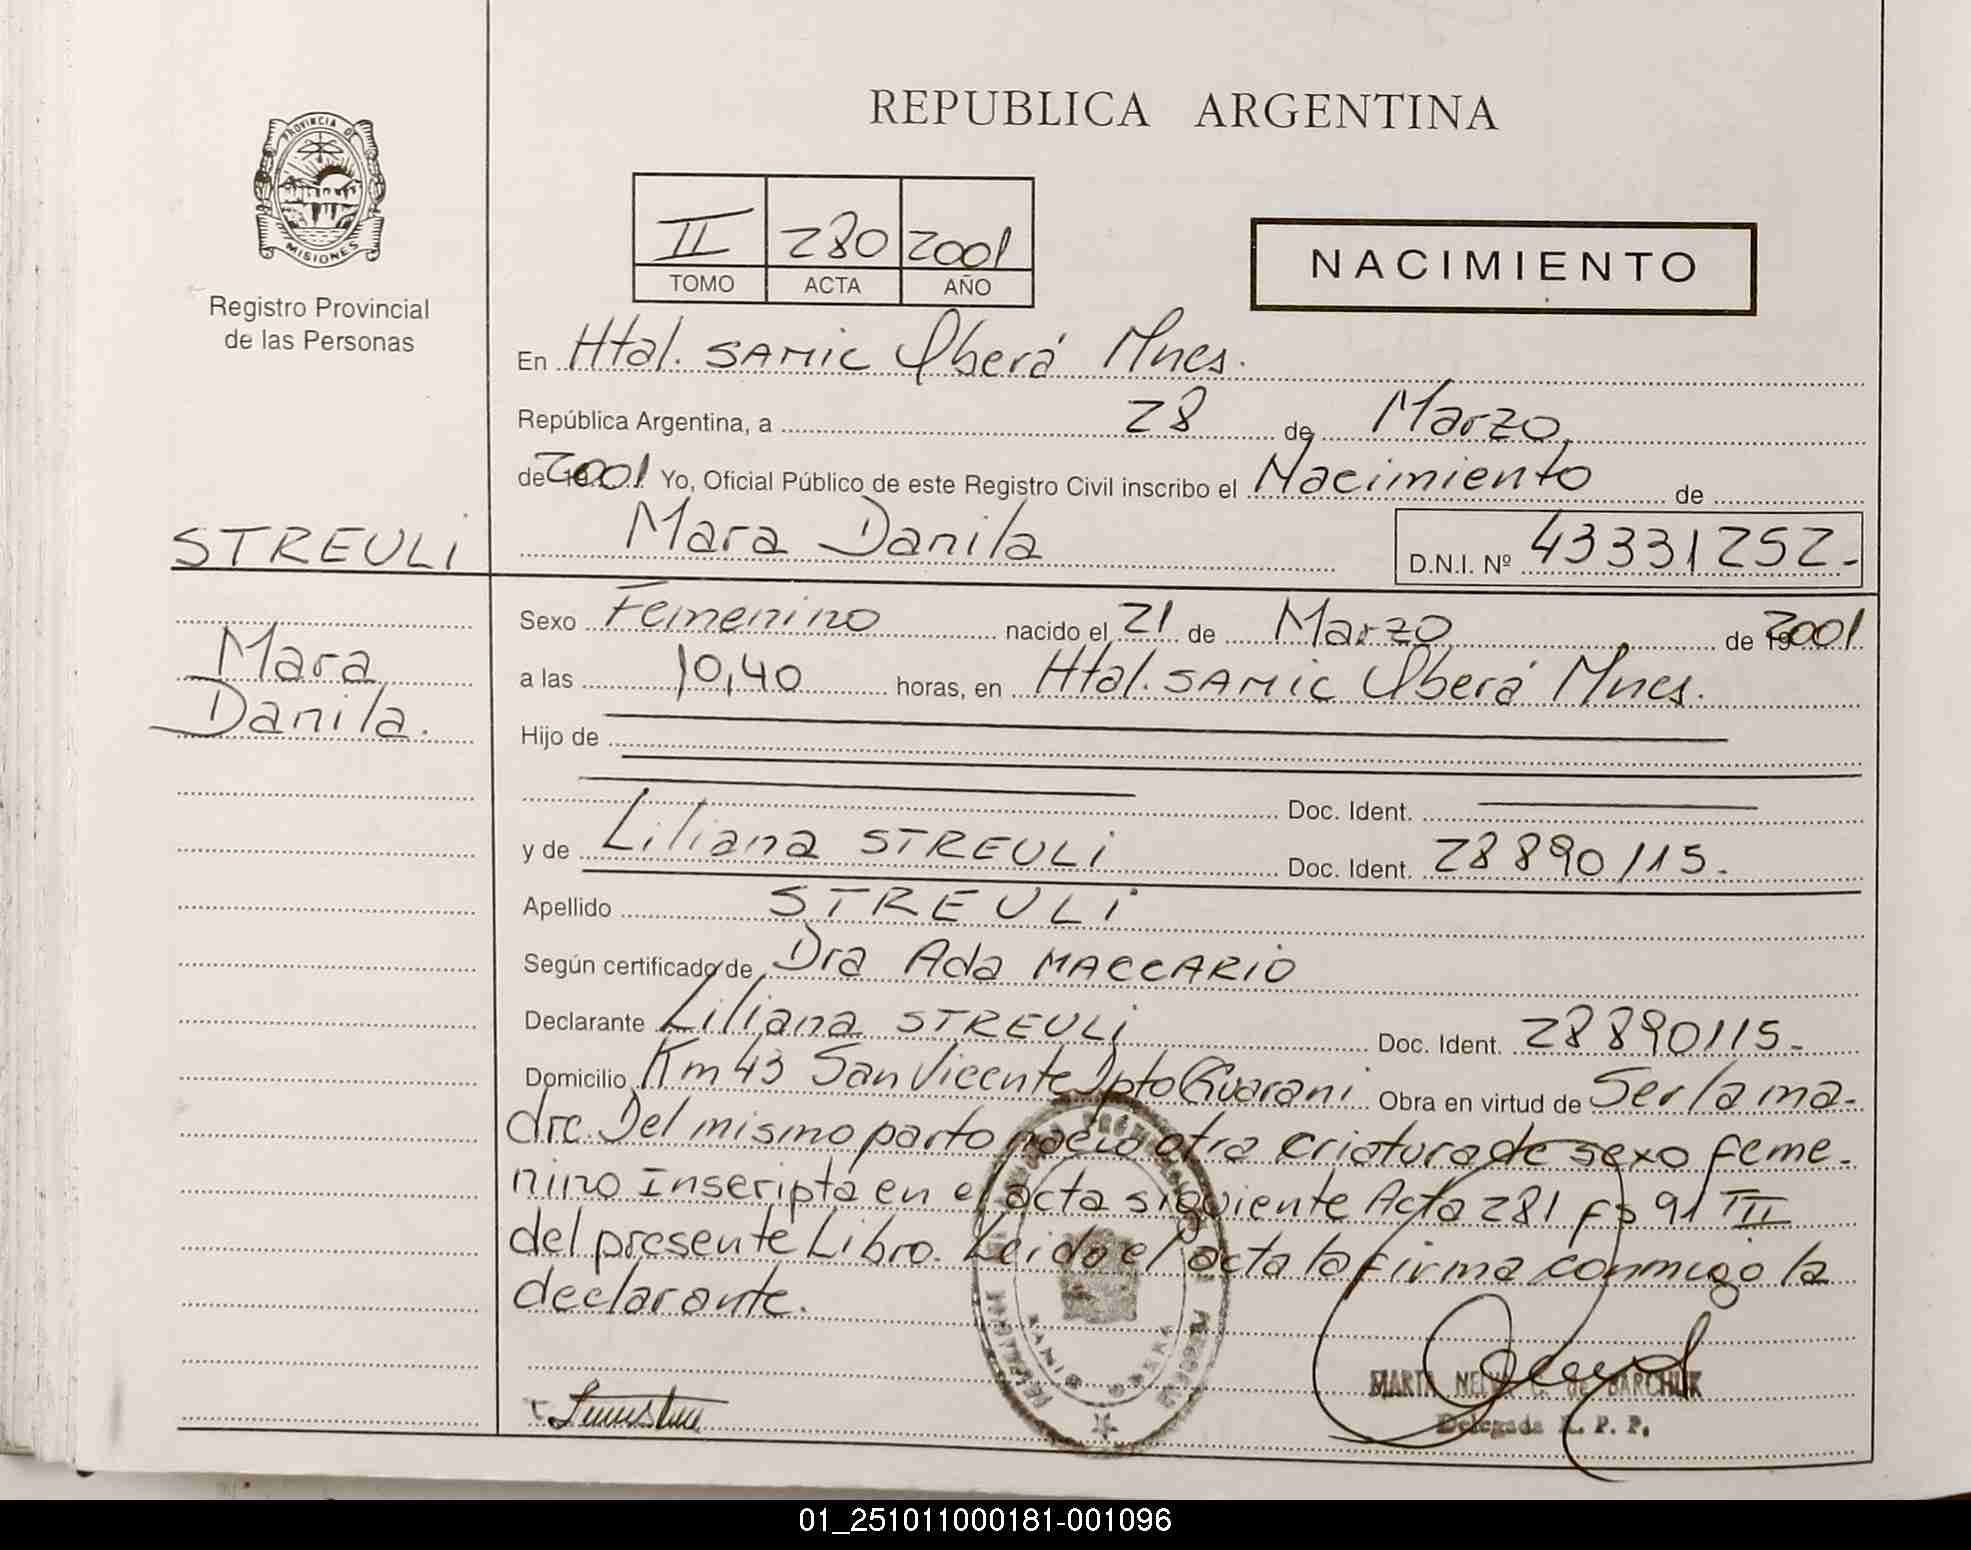 REPUBLICA ARGENTINA
PROVINCIA DE
MISIONES
Registro Provincial
de las Personas
II 280 2001
TOMO ACTA AÑO
NACIMIENTO
En Htal. SAMIC Oberá Mnes.
República Argentina, a 28 de Marzo
de 2001 Yo, Oficial Público de este Registro Civil inscribo el Nacimiento de
Mara Danila D.N.I. Nº 43331252-
STREULI
Mara
Danila.
Sexo Femenino nacido el 21 de Marzo de 2001
a las 10,40 horas, en Htal. SAMIC Oberá Mnes.
Hijo de
Doc. Ident.
y de Liliana STREULI Doc. Ident. 28890115-
Apellido STREULI
Según certificado de Dra Ada MACCARIO
Declarante Liliana STREULI Doc. Ident. 28890115-
Domicilio Km 43 San Vicente Dpto Guarani Obra en virtud de Ser la ma-
dre. Del mismo parto nacio otra criatura de sexo feme-
nino Inscripta en el acta siguiente Acta 281 fs 91 TII
del presente Libro. Leido el acta la firma conmigo la
declarante.
MARTA NELIDA C. DE BARCHUK
Delegada R. P. P.
01_251011000181-001096